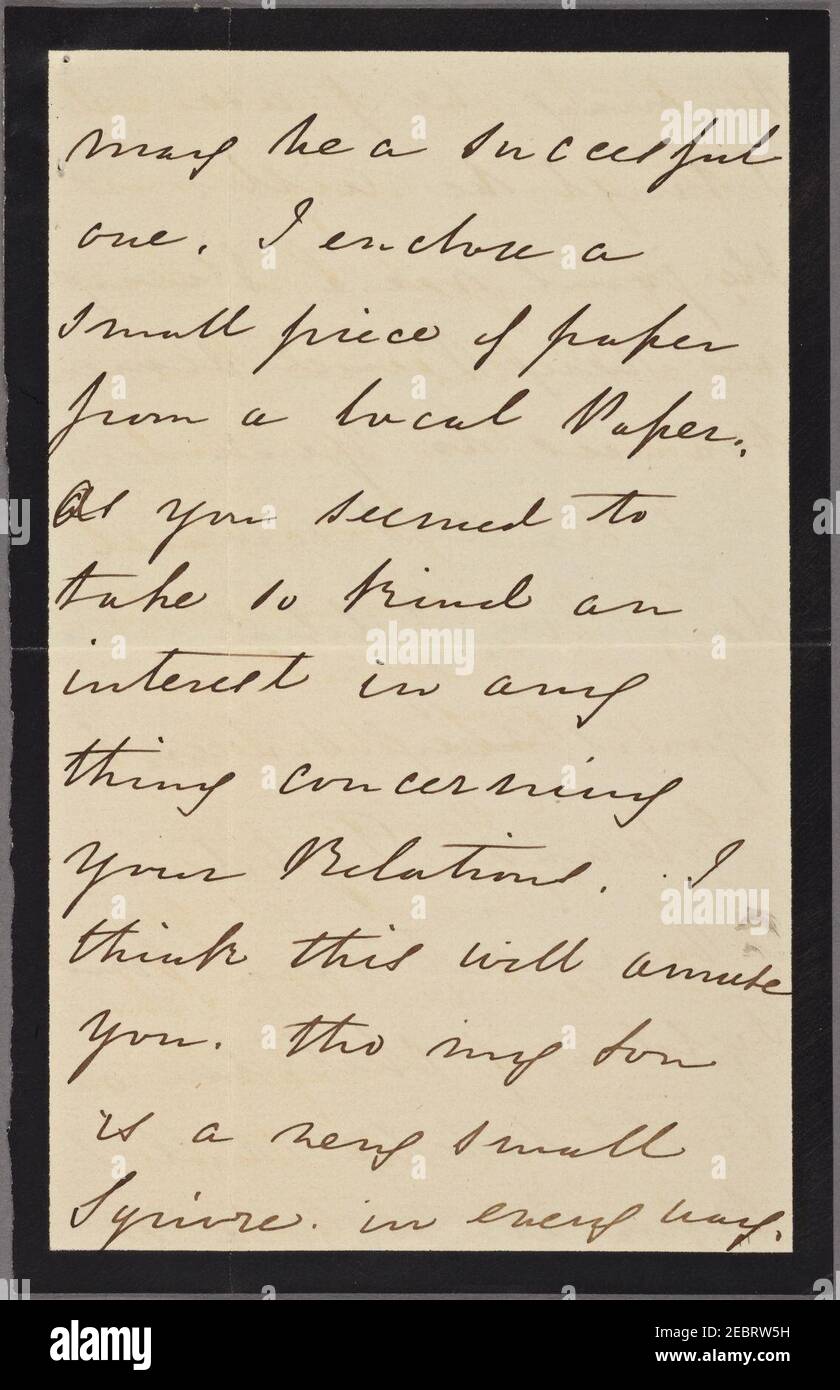 may be a succesful
one. I enclose a
small piece of paper
from a local Paper.
as you seemed to
take so kind an
interest in any
thing concerning
your Relations. I
think this will amuse
you. tho my son
is a very small
Squire. in every way.
alamy
Image ID: 2EBRW5H
www.alamy.com